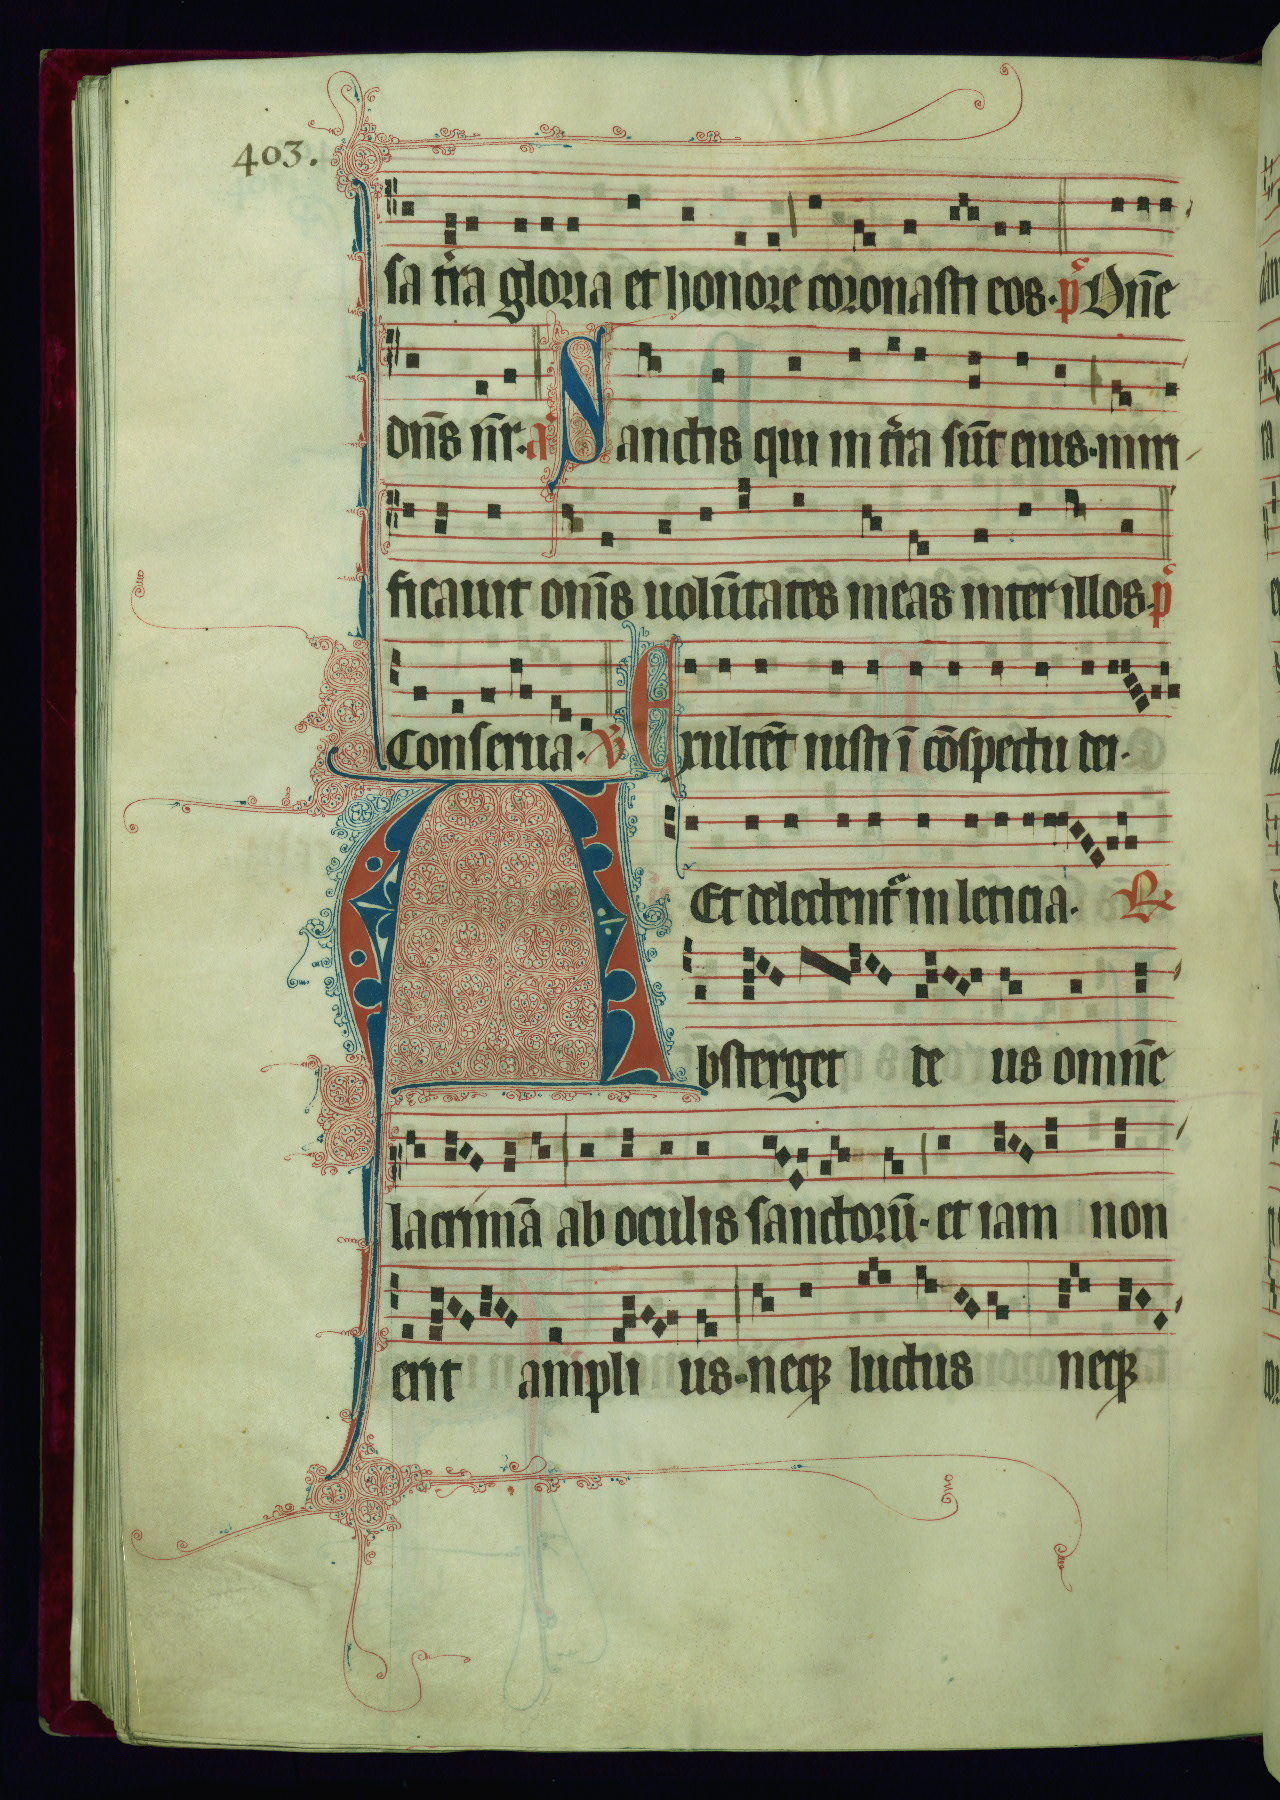 403.
sa tr̃a gloria et honore coronasti eos· p̃s Dñe
dñs nr̃· a Sanctis qui in tr̃a sũt eius· miri
ficauit om̃s uolũtates meas inter illos· p̃s
Conserua· v̄ Exultẽt iusti ĩ cõspectu dei·
Et delectent᷑ in leticia· R̃
Absterget de us omnẽ
lacrimã ab oculis sanctorũ· et iam non
erit ampli us· neqꝫ luctus neqꝫ